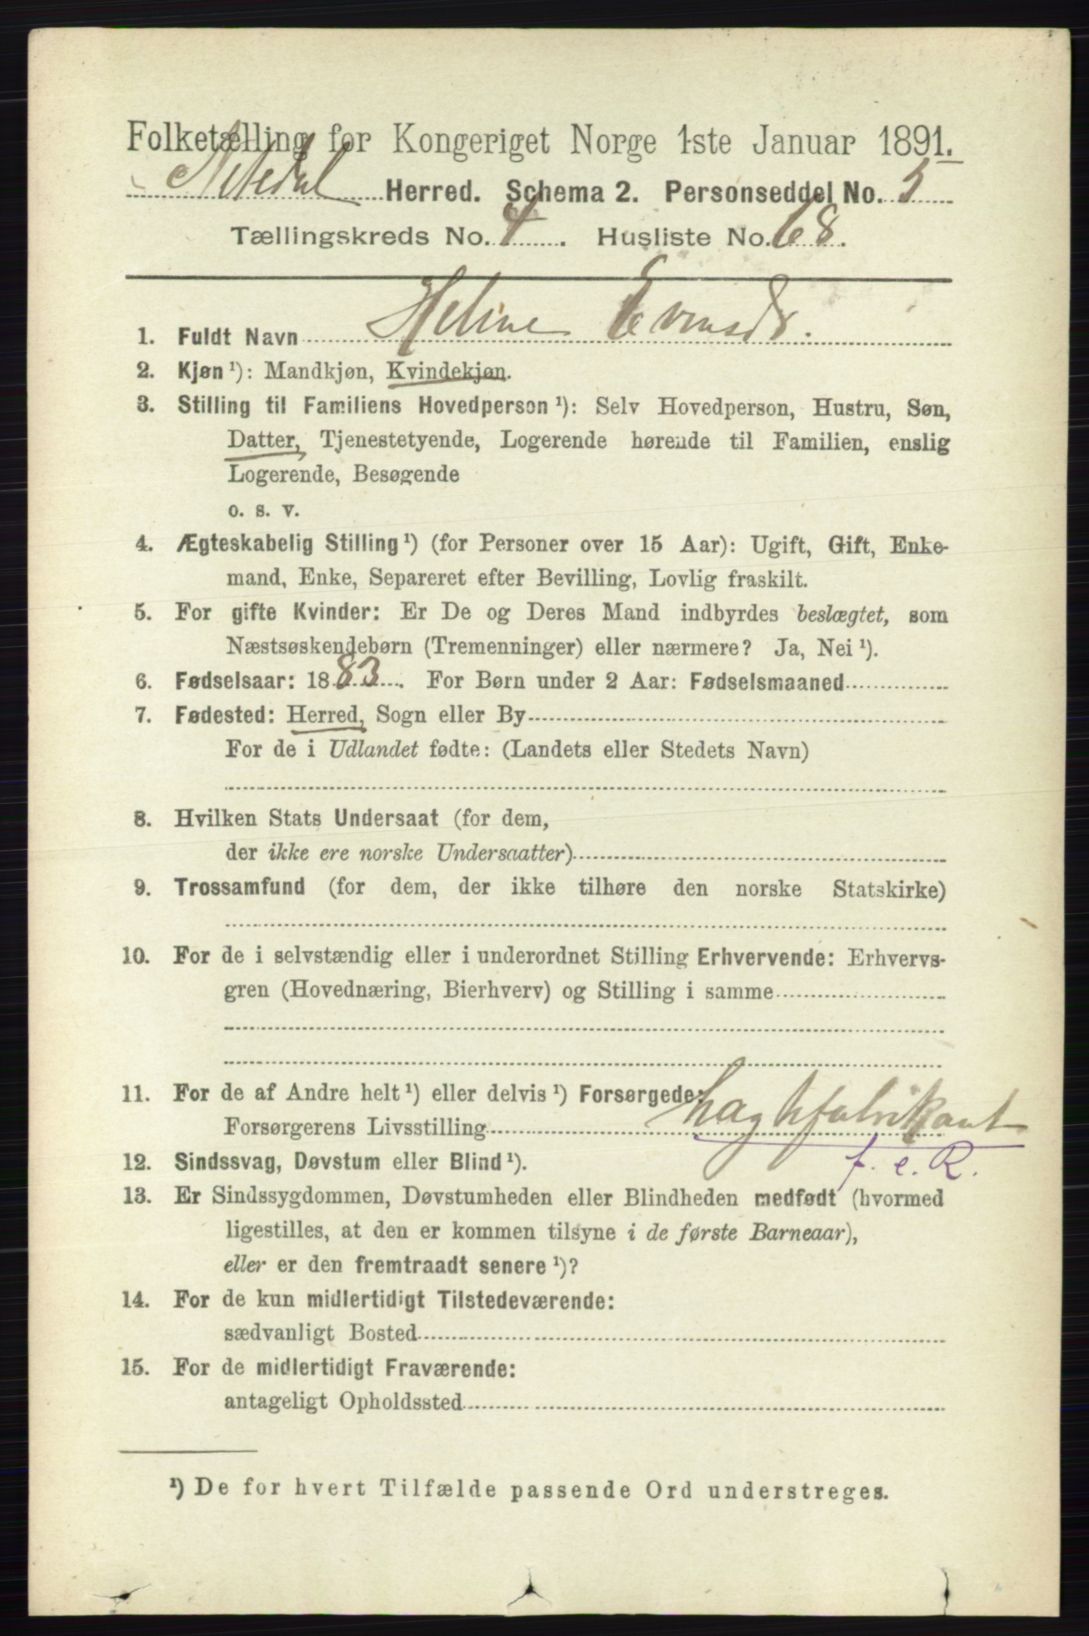 Folketælling for Kongeriget Norge 1ste Januar 1891.
Nitedal Herred. Schema 2. Personseddel No. 5
Tællingskreds No. 4. Husliste No. 68.
1. Fuldt Navn Heline Evensdr.
2. Kjøn ¹): Mandkjøn, Kvindekjøn.
3. Stilling til Familiens Hovedperson ¹): Selv Hovedperson, Hustru, Søn,
Datter, Tjenestetyende, Logerende hørende til Familien, enslig
Logerende, Besøgende
o. s. v.
4. Ægteskabelig Stilling ¹) (for Personer over 15 Aar): Ugift, Gift, Enke-
mand, Enke, Separeret efter Bevilling, Lovlig fraskilt.
5. For gifte Kvinder: Er De og Deres Mand indbyrdes beslægtet, som
Næstsøskendebørn (Tremenninger) eller nærmere? Ja, Nei ¹).
6. Fødselsaar: 1883. For Børn under 2 Aar: Fødselsmaaned
7. Fødested: Herred, Sogn eller By
For de i Udlandet fødte: (Landets eller Stedets Navn)
8. Hvilken Stats Undersaat (for dem,
der ikke ere norske Undersaatter)
9. Trossamfund (for dem, der ikke tilhøre den norske Statskirke)
10. For de i selvstændig eller i underordnet Stilling Erhvervende: Erhvervs-
gren (Hovednæring, Bierhverv) og Stilling i samme
11. For de af Andre helt ¹) eller delvis ¹) Forsørgede:
Forsørgerens Livsstilling
12. Sindssvag, Døvstum eller Blind ¹). f. e. R.
13. Er Sindssygdommen, Døvstumheden eller Blindheden medfødt (hvormed
ligestilles, at den er kommen tilsyne i de første Barneaar),
eller er den fremtraadt senere ¹)?
14. For de kun midlertidigt Tilstedeværende:
sædvanligt Bosted
15. For de midlertidigt Fraværende:
antageligt Opholdssted
¹) De for hvert Tilfælde passende Ord understreges.